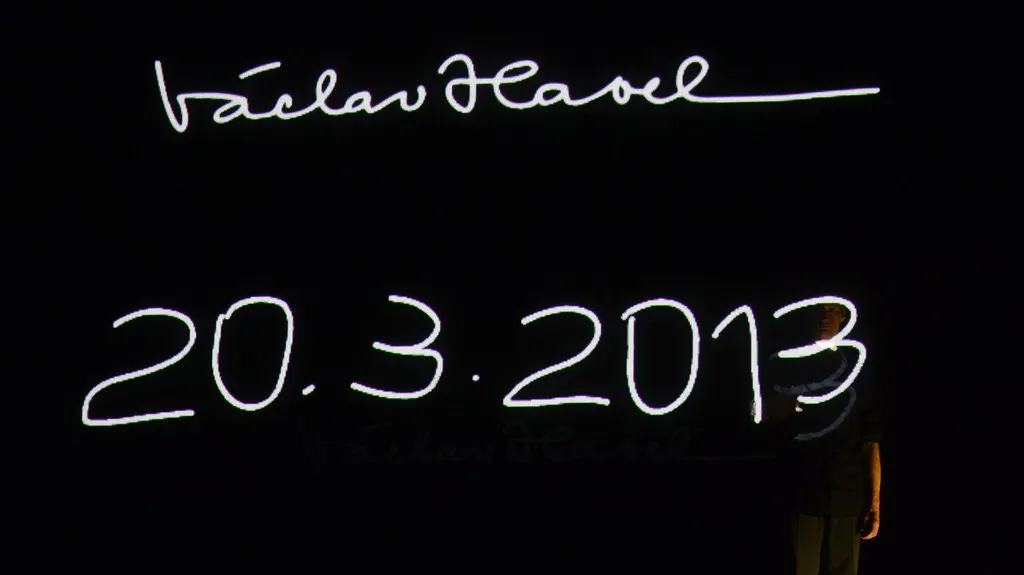 Václav Havel
20.3.2013
Václav Havel